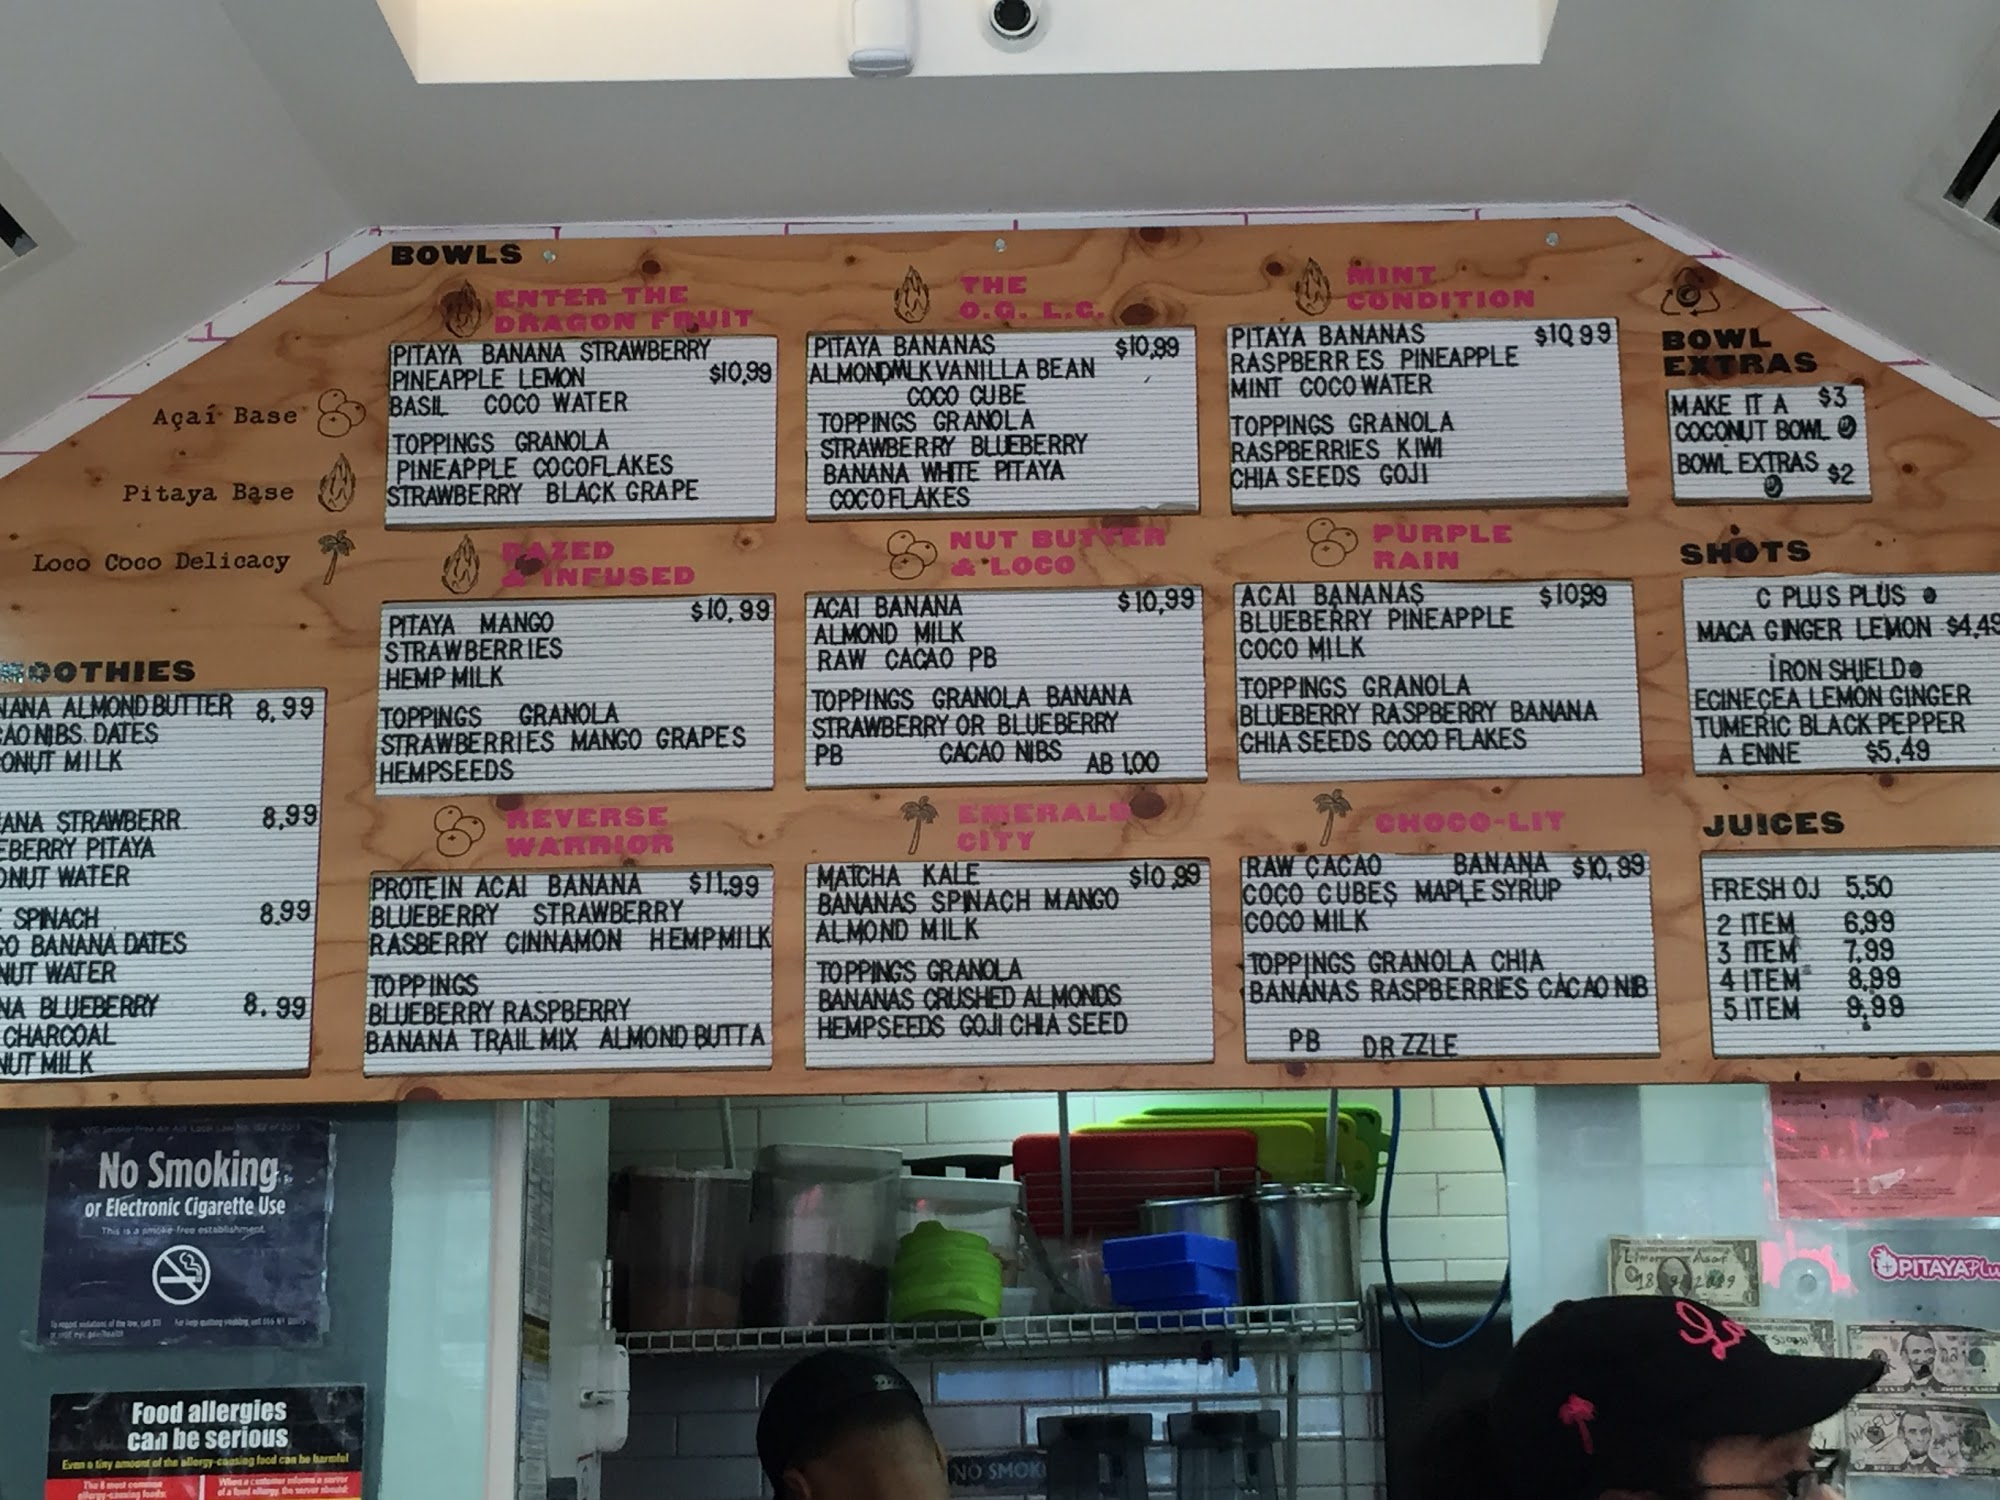 BOWLS
ENTER THE
DRAGON FRUIT
PITAYA BANANA STRAWBERRY
PINEAPPLE LEMON $10,99
BASIL COCO WATER
TOPPINGS GRANOLA
PINEAPPLE COCOFLAKES
STRAWBERRY BLACK GRAPE
THE
O.G. L.C.
PITAYA BANANAS $10,99
VANILLA BEAN
COCO CUBE
TOPPINGS GRANOLA
STRAWBERRY BLUEBERRY
BANANA WHITE PITAYA
COCOFLAKES
MINT
CONDITION
PITAYA BANANAS $10 99
RASPBERR ES PINEAPPLE
MINT COCO WATER
TOPPINGS GRANOLA
RASPBERRIES KIWI
CHIA SEEDS GOJI
BOWL
EXTRAS
MAKE IT A $3
COCONUT BOWL
BOWL EXTRAS $2
Açaí Base
Pitaya Base
Loco Coco Delicacy
DAZED
& INFUSED
PITAYA MANGO $10,99
STRAWBERRIES
HEMP MILK
TOPPINGS GRANOLA
STRAWBERRIES MANGO GRAPES
HEMPSEEDS
NUT BUTTER
& LOCO
ACAI BANANA $10,99
ALMOND MILK
RAW CACAO PB
TOPPINGS GRANOLA BANANA
STRAWBERRY OR BLUEBERRY
PB CACAO NIBS AB 1.00
PURPLE
RAIN
ACAI BANANAS $10,99
BLUEBERRY PINEAPPLE
COCO MILK
TOPPINGS GRANOLA
BLUEBERRY RASPBERRY BANANA
CHIA SEEDS COCO FLAKES
SHOTS
C PLUS PLUS
MACA GINGER LEMON $4,49
IRON SHIELD
ECINECEA LEMON GINGER
TUMERIC BLACK PEPPER
A ENNE $5,49
OOTHIES
NANA ALMOND BUTTER 8,99
CAO NIBS. DATES
ONUT MILK
ANA STRAWBERR 8,99
EBERRY PITAYA
ONUT WATER
SPINACH 8,99
GO BANANA DATES
NUT WATER
NA BLUEBERRY 8.99
CHARCOAL
NUT MILK
REVERSE
WARRIOR
PROTEIN ACAI BANANA $11,99
BLUEBERRY STRAWBERRY
RASBERRY CINNAMON HEMPMILK
TOPPINGS
BLUEBERRY RASPBERRY
BANANA TRAIL MIX ALMOND BUTTA
EMERALD
CITY
MATCHA KALE $10,99
BANANAS SPINACH MANGO
ALMOND MILK
TOPPINGS GRANOLA
BANANAS CRUSHED ALMONDS
HEMPSEEDS GOJI CHIA SEED
CHOCO-LIT
RAW CACAO BANANA $10,99
COCO CUBES MAPLE SYRUP
COCO MILK
TOPPINGS GRANOLA CHIA
BANANAS RASPBERRIES CACAO NIB
PB DR ZZLE
JUICES
FRESH OJ 5,50
2 ITEM 6,99
3 ITEM 7,99
4 ITEM 8,99
5 ITEM 9,99
No Smoking
or Electronic Cigarette Use
This is a smoke-free establishment.
Food allergies
can be serious
Even a tiny amount of the allergy-causing food can be harmful
The 8 most common
allergy-causing foods:
When a customer informs a server
of a food allergy, the server should:
NO SMOK
PITAYA Plu